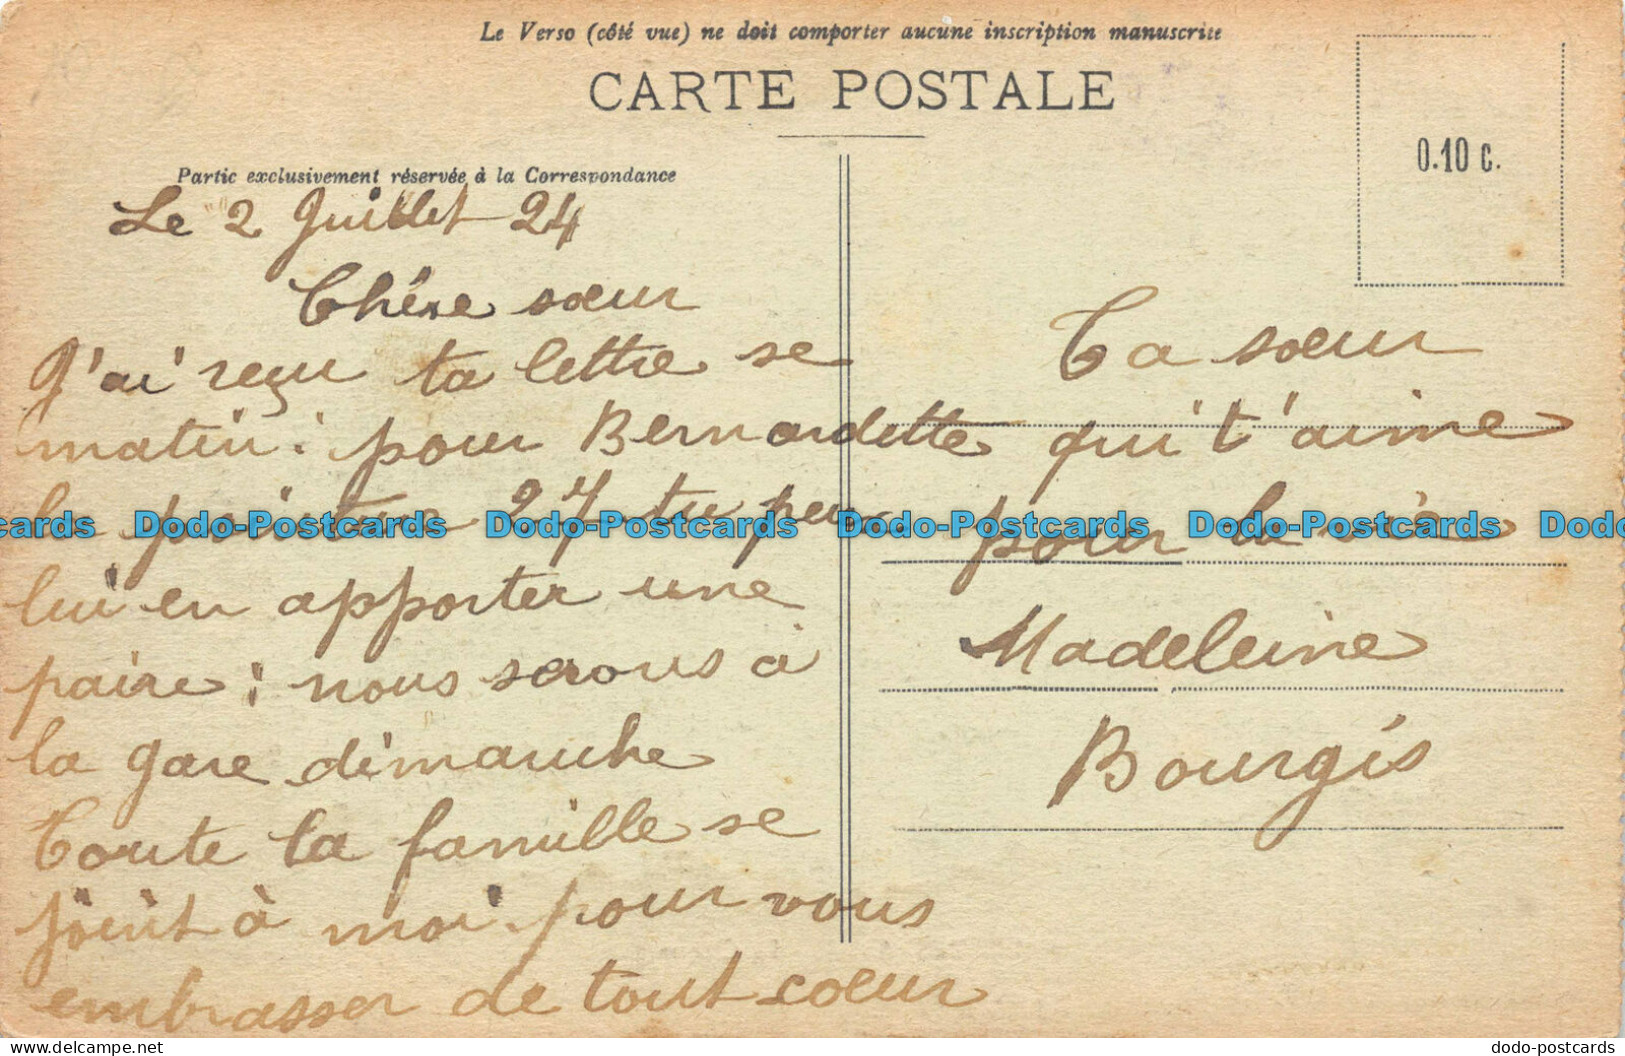 Le Verso (côté vue) ne doit comporter aucune inscription manuscrite
CARTE POSTALE
0.10 c.
Partie exclusivement réservée à la Correspondance
Le 2 Juillet 24
Chére sœur
J'ai reçu ta lettre se
matin : pour Bernardette
la pointure 27 tu peux
lui en apporter une
paire : nous serons à
la gare dimanche
Toute la famille se
joint à moi pour vous
embrasser de tout cœur
Ta sœur
qui t'aime
pour la vie
Madeleine
Bourgis
Dodo-Postcards Dodo-Postcards Dodo-Postcards Dodo-Postcards
dodo-postcards.com
dodo-postcards